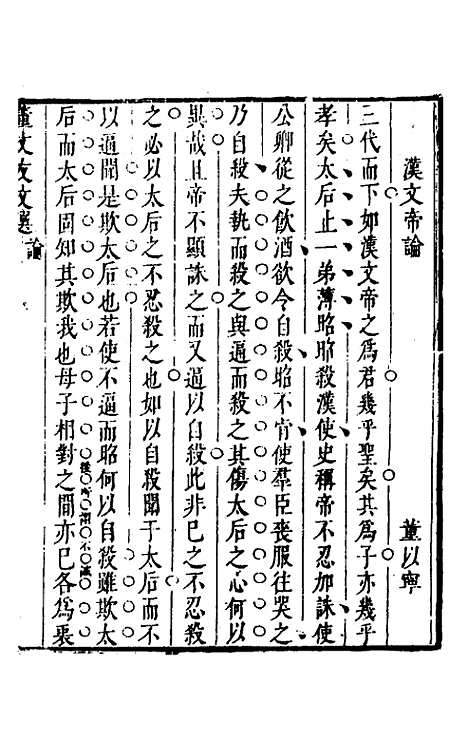 漢文帝論
董以寧
三代而下如漢文帝之爲君幾乎聖矣其爲子亦幾乎
孝矣太后止一弟薄昭昭殺漢使史稱帝不忍加誅使
公卿從之飲酒欲令自殺昭不肯使羣臣喪服往哭之
乃自殺夫執而殺之與逼而殺之其傷太后之心何以
異哉且帝不顯誅之而又逼以自殺此非已之不忍殺
之必以太后之不忍殺之也如以自殺聞于太后而不
以逼聞是欺太后也若使不逼而昭何以自殺雖欺太
后而太后固知其欺我也母子相對之間亦已各爲裏
董文友文選
論